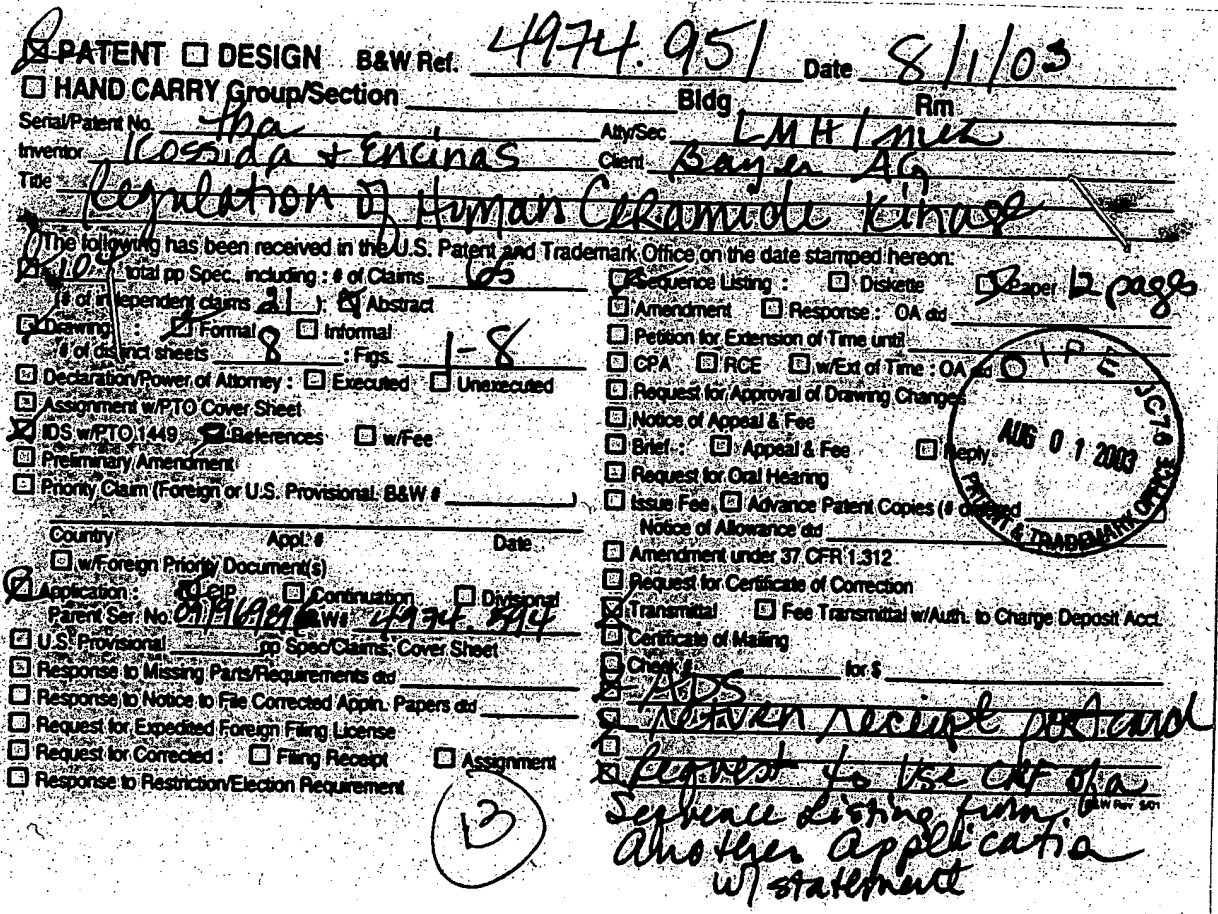 ☒ PATENT ☐ DESIGN B&W Ref. 4974.951 Date 8/1/03
☐ HAND CARRY Group/Section Bldg Rm
Serial/Patent No. tba Atty/Sec LMH/
Inventor Kossida + Encinas Client Bayer AG
Title Regulation of Human Ceramide Kinase
The following has been received in the U.S. Patent and Trademark Office on the date stamped hereon:
☒ total pp Spec., including : # of Claims 65
(# of independent claims 21 ): ☒ Abstract
☒ Drawing : ☒ Formal ☐ Informal
# of distinct sheets 8 : Figs. 1-8
☐ Declaration/Power of Attorney : ☐ Executed ☐ Unexecuted
☐ Assignment w/PTO Cover Sheet
☒ IDS w/PTO 1449 ☒ References ☐ w/Fee
☐ Preliminary Amendment
☐ Priority Claim (Foreign or U.S. Provisional. B&W # )
Country Appl. # Date
☐ w/Foreign Priority Document(s)
☒ Application : ☒ CIP ☐ Continuation ☐ Divisional
Parent Ser. No. 09/969896 B&W# 4974.
☐ U.S. Provisional pp Spec/Claims; Cover Sheet
☐ Response to Missing Parts/Requirements dtd
☐ Response to Notice to File Corrected Appln. Papers dtd
☐ Request for Expedited Foreign Filing License
☐ Request for Corrected : ☐ Filing Receipt ☐ Assignment
☐ Response to Restriction/Election Requirement
13
☒ Sequence Listing : ☐ Diskette ☒ Paper 12 pages
☐ Amendment ☐ Response : OA dtd
☐ Petition for Extension of Time until
☐ CPA ☐ RCE ☐ w/Ext of Time : OA dtd
☐ Request for Approval of Drawing Changes
☐ Notice of Appeal & Fee
☐ Brief : ☐ Appeal & Fee ☐ Reply
☐ Request for Oral Hearing
☐ Issue Fee ☐ Advance Patent Copies (# ordered
Notice of Allowance dtd
☐ Amendment under 37 CFR 1.312
☐ Request for Certificate of Correction
☒ Transmittal ☐ Fee Transmittal w/Auth. to Charge Deposit Acct.
☐ Certificate of Mailing
☐ Check #: for $
☒ ADS
☒ return receipt postcard
☒ Request to Use CRF of a
B&W Rev 5/01
Sequence Listing from
Another Application
w/ statement
OIPE JC78
AUG 01 2003
PATENT & TRADEMARK OFFICE